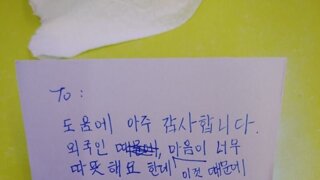 To :
도움에 아주 감사합니다.
외국인 , 마음이 너무
따뜻해요 한데 이것 때문에